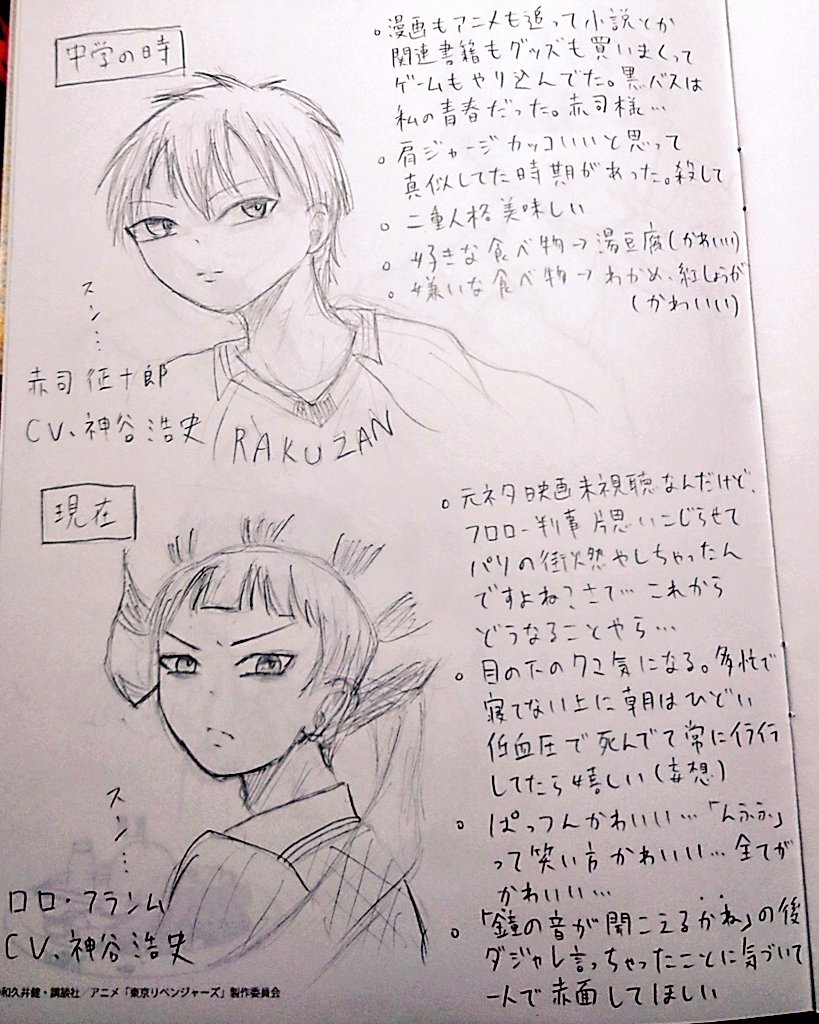 中学の時
○漫画もアニメも追って小説とか
関連書籍もグッズも買いまくって
ゲームもやり込んでた。黒バスは
私の青春だった。赤司様…
○肩ジャージカッコいいと思って
真似してた時期があった。殺して
○二重人格美味しい
○好きな食べ物→湯豆腐(かわいい)
○嫌いな食べ物→わかめ、紅しょうが
(かわいい)
スン…
赤司征十郎
CV、神谷浩史
RAKUZAN
現在
○元ネタ映画未視聴なんだけど、
フロロー判事片思いこじらせて
パリの街燃やしちゃったん
ですよね?さて…これから
どうなることやら…
○目の下のクマ気になる。多忙で
寝てない上に朝はひどい
低血圧で死んでて常にイライラ
してたら嬉しい(妄想)
○ぱっつんかわいい…「んふふ」
って笑い方かわいい…全てが
かわいい…
○「鐘の音が聞こえるかね」の後
ダジャレ言っちゃったことに気づいて
一人で赤面してほしい
スン…
ロロ・フランム
CV、神谷浩史
和久井健・講談社/アニメ「東京リベンジャーズ」製作委員会